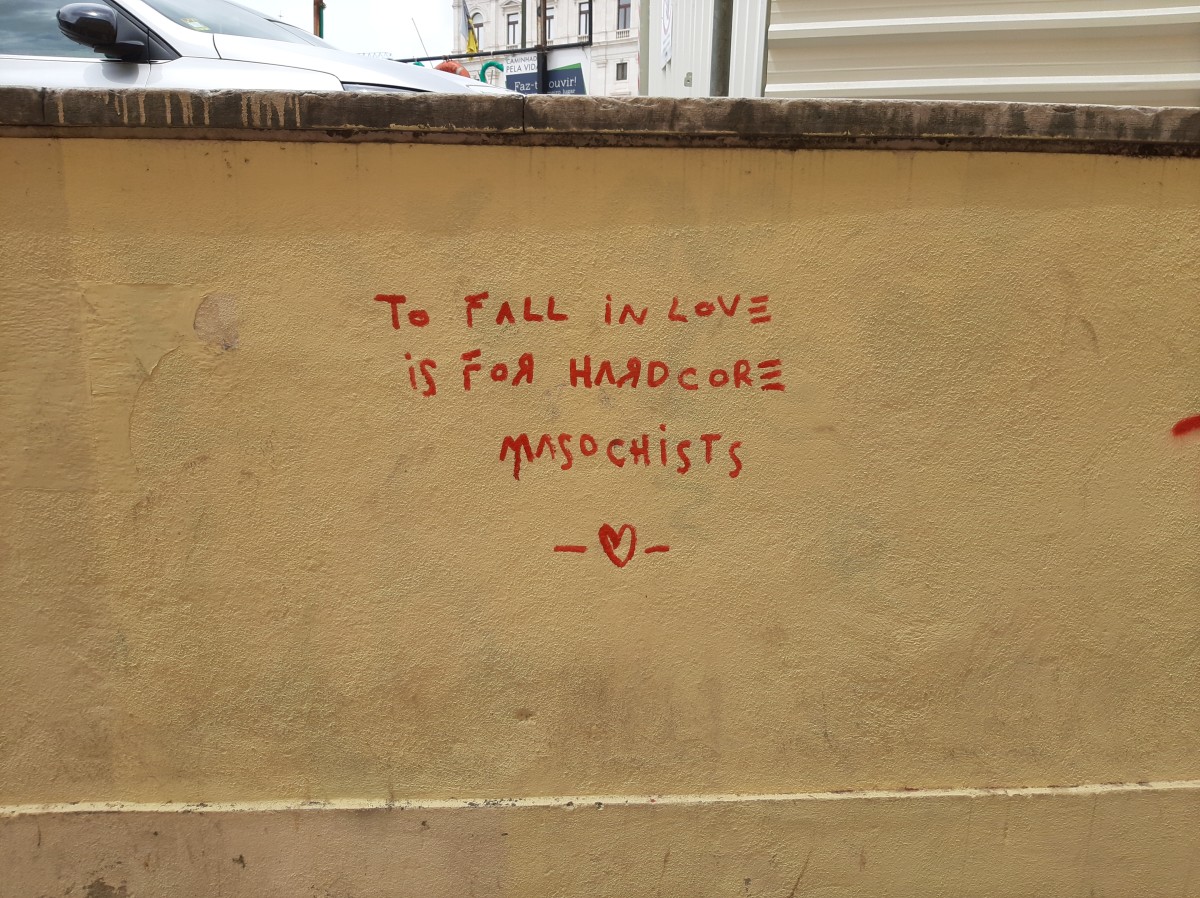 CAMINHAD
PELA VIDA
Faz-t ouvir!
TO FALL IN LOVE
iS FOR HARDCORE
MASOCHiSTS